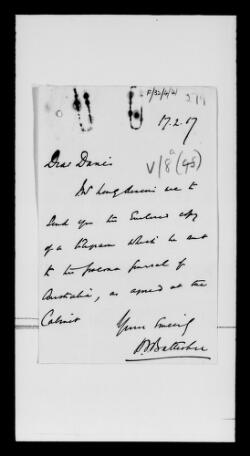 F/32/4/41
17.2.17
V/8a (48)
Dear Davies
Mr Long desires me to
send you the enclosed copy
of a telegram which he sent
to the Governor General of
Australia, as agreed at the
Cabinet
Yours sincerely